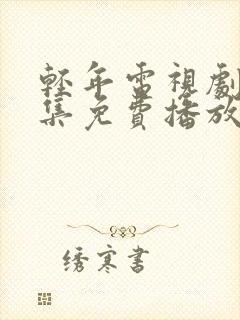 輕年電視劇
集免費播放
绣寒書